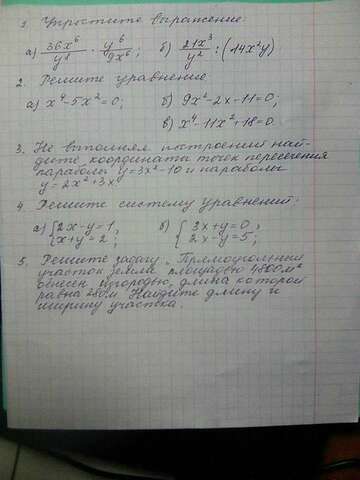 1. Упростите выражение
а) 36x⁶/y⁸ · y⁶/9x⁶; б) 21x³/y² : (14x²y)
2. Решите уравнение
а) x⁴-5x²=0; б) 9x²-2x-11=0;
в) x⁴-11x²+18=0
3. Не выполняя построений най-
дите координаты точек пересечения
параболы y=3x²-10 и параболы
y=2x²+3x
4. Решите систему уравнений:
а) {2x-y=1, б) {3x+y=0,
x+y=2; 2x-y=5;
5. Решите задачу „Прямоугольный
участок земли площадью 4800м²
обнесен изгородью, длина которой
равна 280м. Найдите длину и
ширину участка.